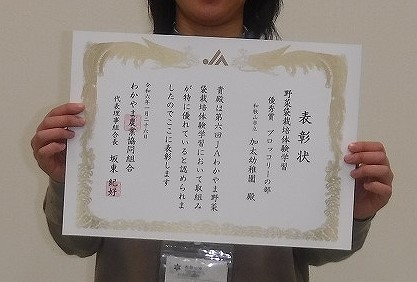 JA
表彰状
野菜袋栽培体験学習
優秀賞 ブロッコリーの部
和歌山市立
加太幼稚園 殿
貴殿は第六回JAわかやま野菜
袋栽培体験学習において取組み
が特に優れていると認められま
したのでここに表彰します
令和六年一月二十六日
わかやま農業協同組合
代表理事組合長 坂東 紀好